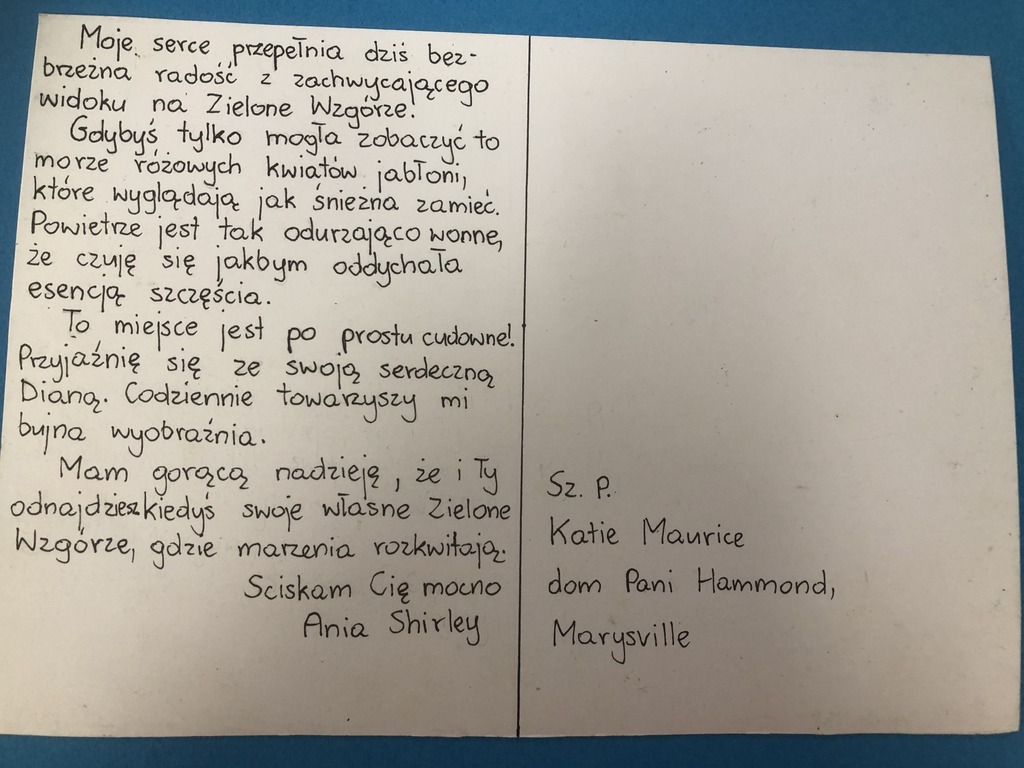 Moje serce przepełnia dziś bez-
brzeżna radość z zachwycającego
widoku na Zielone Wzgórze.
Gdybyś tylko mogła zobaczyć to
morze różowych kwiatów jabłoni,
które wyglądają jak śnieżna zamieć.
Powietrze jest tak odurzająco wonne,
że czuję się jakbym oddychała
esencją szczęścia.
To miejsce jest po prostu cudowne!
Przyjaźnię się ze swoją serdeczną
Dianą. Codziennie towarzyszy mi
bujna wyobraźnia.
Mam gorącą nadzieję, że i Ty
odnajdziesz kiedyś swoje własne Zielone
Wzgórze, gdzie marzenia rozkwitają.
Sciskam Cię mocno
Ania Shirley
Sz. P.
Katie Maurice
dom Pani Hammond,
Marysville